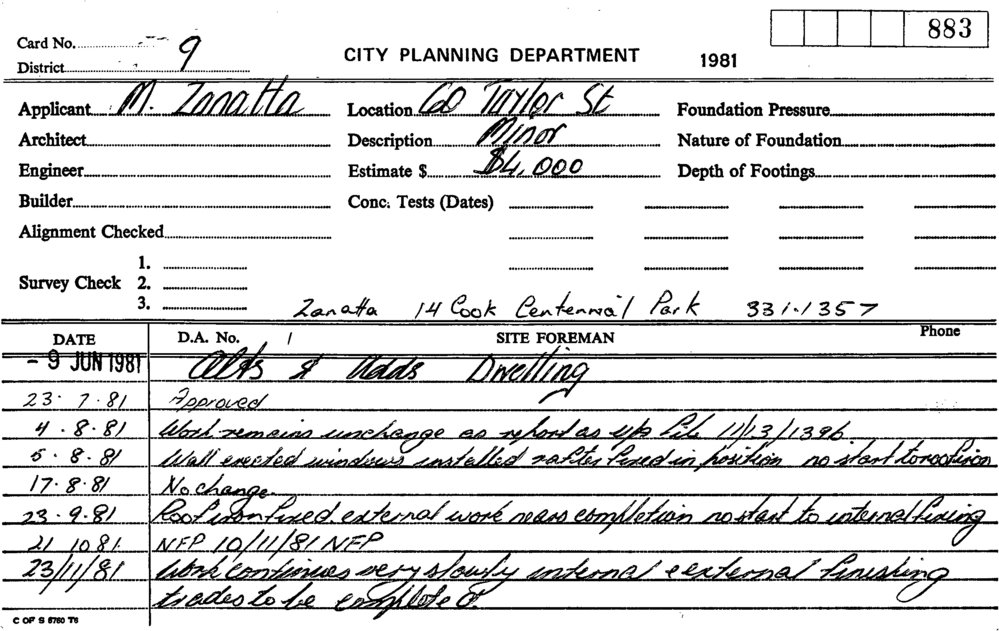 883
Card No.
District 9
CITY PLANNING DEPARTMENT 1981
Applicant M. Zanatta Location 60 Taylor St Foundation Pressure
Architect Description Minor Nature of Foundation
Engineer Estimate $ $4,000 Depth of Footings
Builder Conc. Tests (Dates)
Alignment Checked
1.
Survey Check 2.
3.
Zanatta 14 Cook Centennial Park 331.1357
DATE D.A. No. SITE FOREMAN Phone
- 9 JUN 1981 Alts & Adds Dwelling
23.7.81 Approved
4.8.81 Work remains unchange as report as U/p file 11/13/1396.
5.8.81 Wall erected windows installed rafter fixed in position no start to roof iron
17.8.81 No change.
23.9.81 Roof iron fixed. external work nears completion no start to internal fixing
21 10 81. NFP 10/11/81 NFP
23/11/81 Work continues very slowly internal & external finishing
trades to be completed.
C OF S 6760 T6